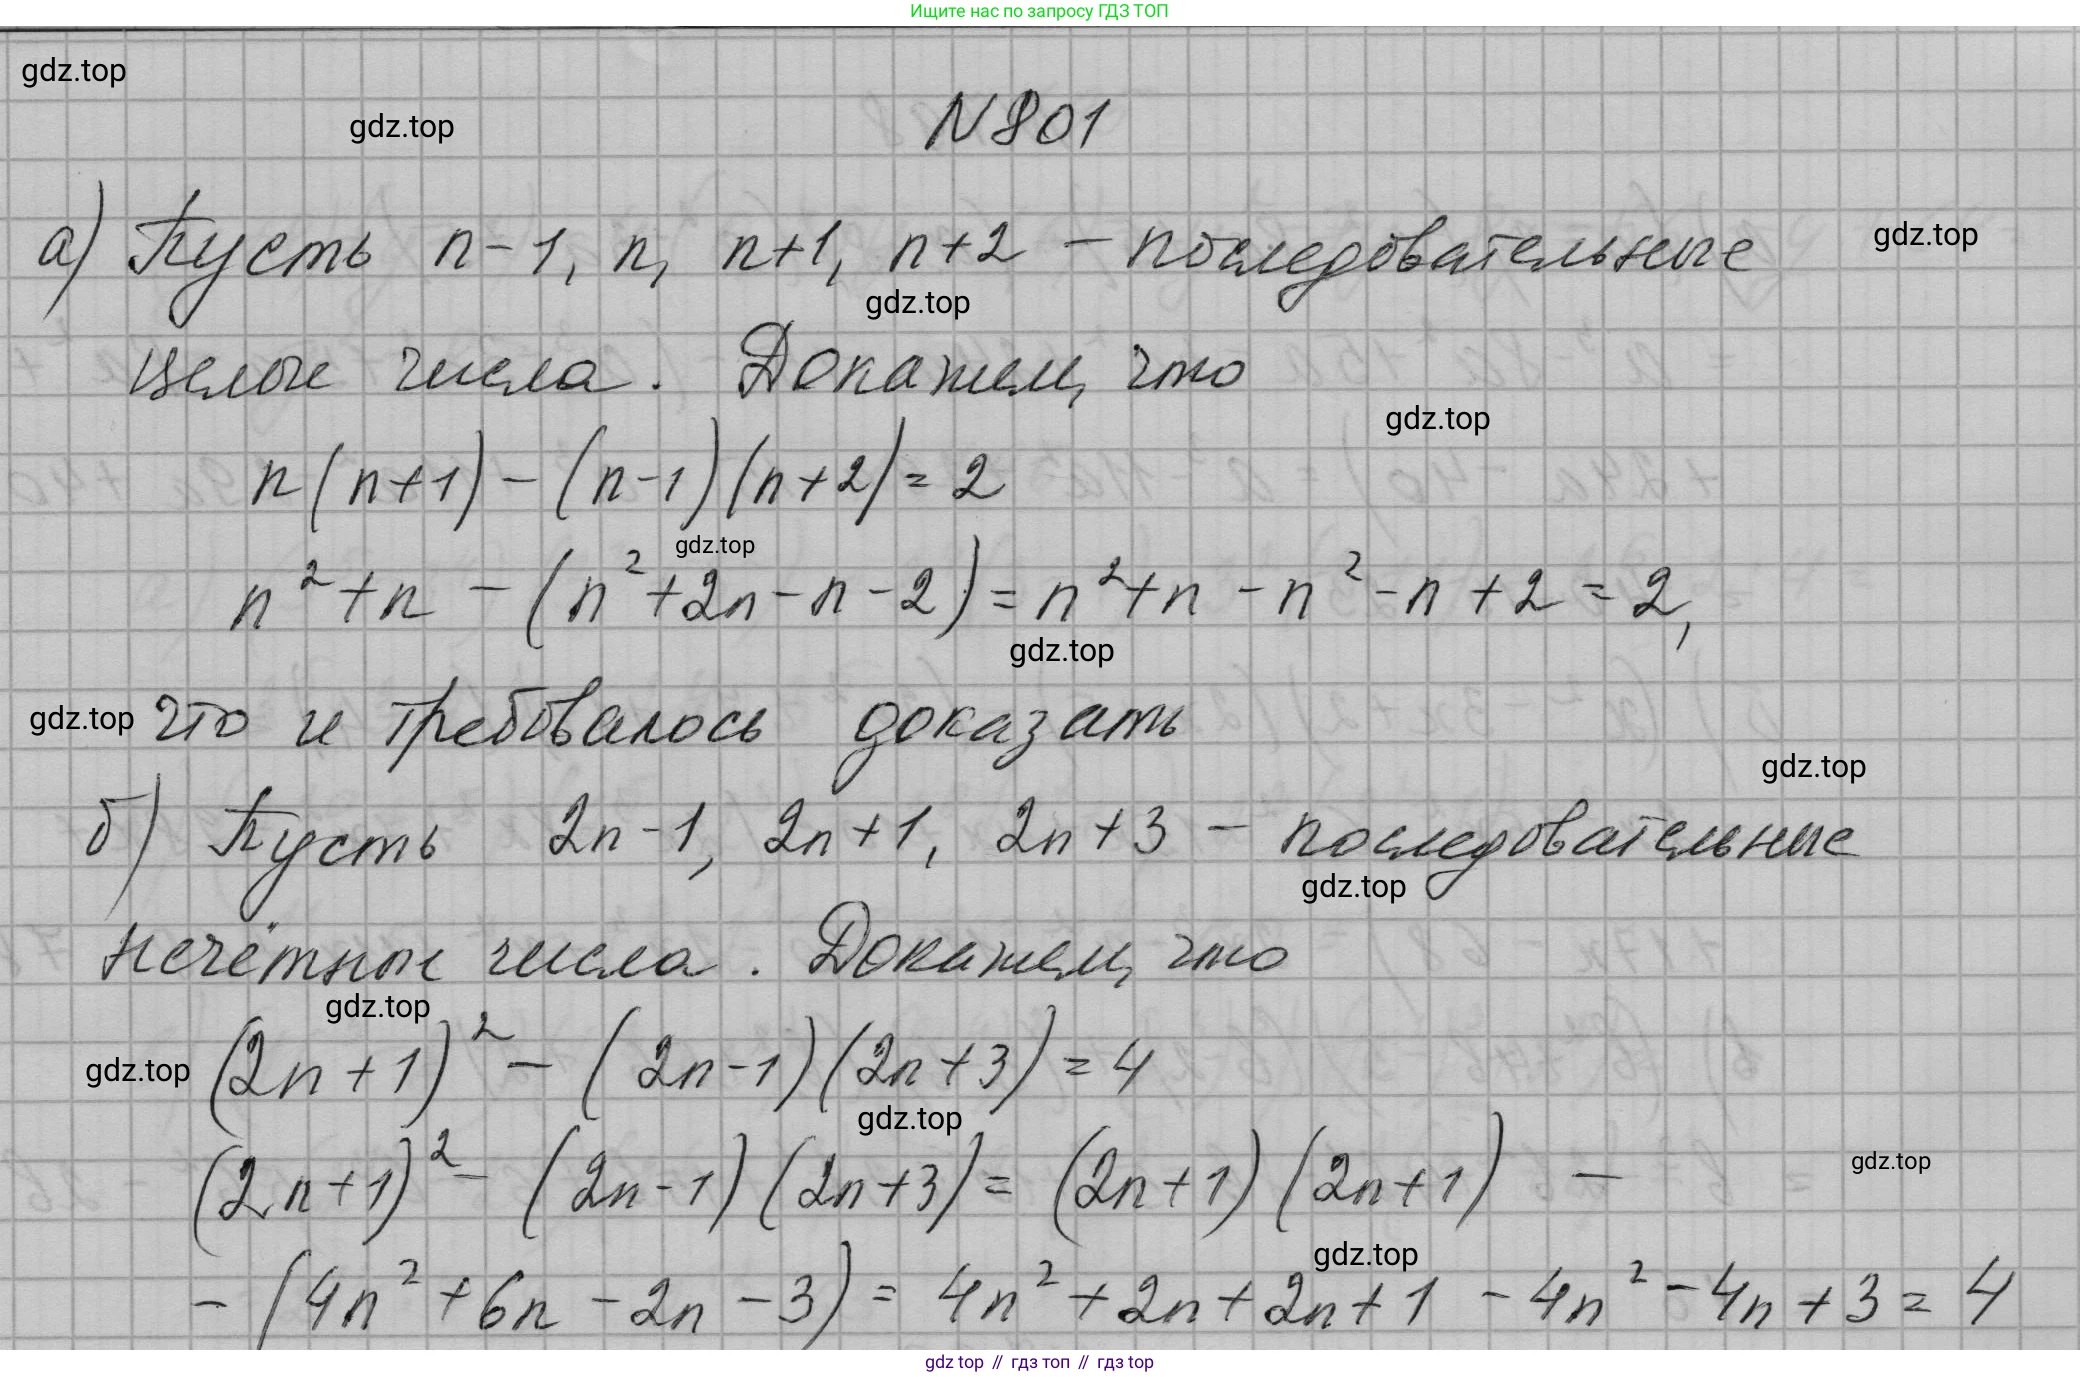 Ищите нас по запросу ГДЗ ТОП
gdz.top
gdz.top
N801
а) Пусть n-1, n, n+1, n+2 – последовательные
gdz.top
gdz.top
целые числа. Докажем, что
gdz.top
n(n+1)-(n-1)(n+2)=2
gdz.top
n²+n-(n²+2n-n-2)=n²+n-n²-n+2=2,
gdz.top
gdz.top
что и требовалось доказать
gdz.top
б) Пусть 2n-1, 2n+1, 2n+3 – последовательные
gdz.top
нечётные числа. Докажем, что
gdz.top
(2n+1)²-(2n-1)(2n+3)=4
gdz.top
gdz.top
(2n+1)²-(2n-1)(2n+3)=(2n+1)(2n+1)-
gdz.top
gdz.top
-(4n²+6n-2n-3)=4n²+2n+2n+1-4n²-4n+3=4
gdz top // гдз топ // гдз top